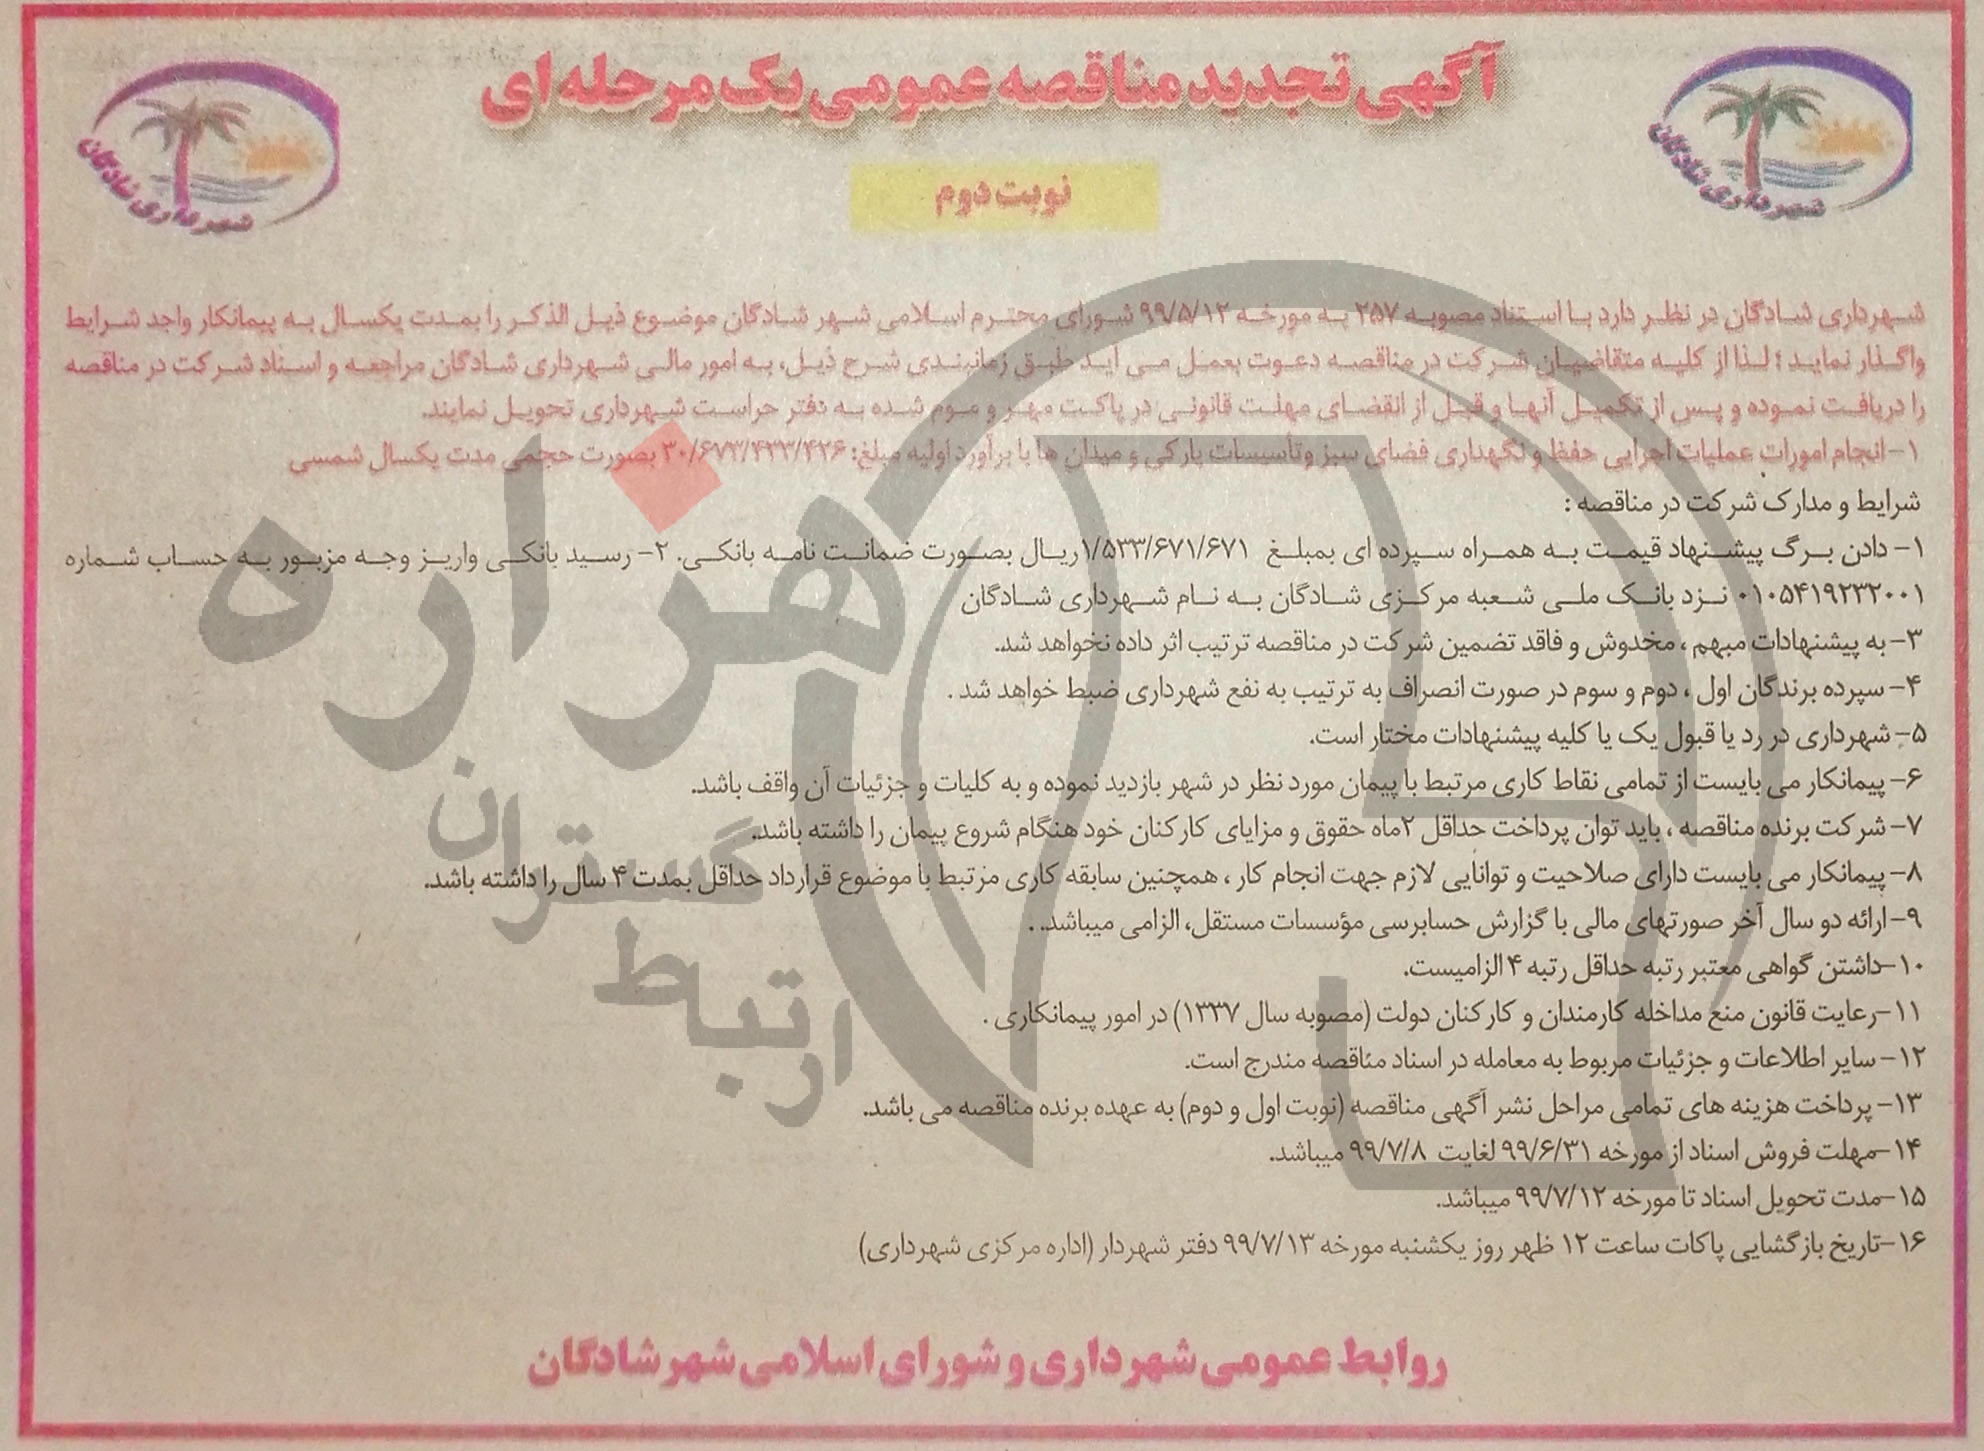 آگهی تجدید مناقصه عمومی یک مرحله ای
شهرداری شادگان
شهرداری شادگان
نوبت دوم
شهرداری شادگان در نظر دارد با استناد مصوبه ۲۵۷ به مورخه ۹۹/۵/۱۲ شورای محترم اسلامی شهر شادگان موضوع ذیل الذکر را بمدت یکسال به پیمانکار واجد شرایط
واگذار نماید ؛ لذا از کلیه متقاضیان شرکت در مناقصه دعوت بعمل می آید طبق زمانبندی شرح ذیل، به امور مالی شهرداری شادگان مراجعه و اسناد شرکت در مناقصه
را دریافت نموده و پس از تکمیل آنها و قبل از انقضای مهلت قانونی در پاکت مهر و موم شده به دفتر حراست شهرداری تحویل نمایند.
۱-انجام امورات عملیات اجرایی حفظ و نگهداری فضای سبز وتأسیسات پارکی و میدان ها با برآورد اولیه مبلغ: ۳۰/۶۷۳/۴۳۳/۴۲۶ بصورت حجمی مدت یکسال شمسی
شرایط و مدارک شرکت در مناقصه :
۱- دادن برگ پیشنهاد قیمت به همراه سپرده ای بمبلغ ۱/۵۳۳/۶۷۱/۶۷۱ریال بصورت ضمانت نامه بانکی. ۲- رسید بانکی واریز وجه مزبور به حساب شماره
۰۱۰۵۴۱۹۲۳۲۰۰۱ نزد بانک ملی شعبه مرکزی شادگان به نام شهرداری شادگان
۳- به پیشنهادات مبهم ، مخدوش و فاقد تضمین شرکت در مناقصه ترتیب اثر داده نخواهد شد.
۴- سپرده برندگان اول ، دوم و سوم در صورت انصراف به ترتیب به نفع شهرداری ضبط خواهد شد .
۵- شهرداری در رد یا قبول یک یا کلیه پیشنهادات مختار است.
۶- پیمانکار می بایست از تمامی نقاط کاری مرتبط با پیمان مورد نظر در شهر بازدید نموده و به کلیات و جزئیات آن واقف باشد.
۷- شرکت برنده مناقصه ، باید توان پرداخت حداقل ۲ماه حقوق و مزایای کارکنان خود هنگام شروع پیمان را داشته باشد.
۸- پیمانکار می بایست دارای صلاحیت و توانایی لازم جهت انجام کار ، همچنین سابقه کاری مرتبط با موضوع قرارداد حداقل بمدت ۴ سال را داشته باشد.
۹-ارائه دو سال آخر صورتهای مالی با گزارش حسابرسی مؤسسات مستقل، الزامی میباشد. .
۱۰-داشتن گواهی معتبر رتبه حداقل رتبه ۴ الزامیست.
۱۱-رعایت قانون منع مداخله کارمندان و کارکنان دولت (مصوبه سال ۱۳۳۷) در امور پیمانکاری .
۱۲- سایر اطلاعات و جزئیات مربوط به معامله در اسناد مناقصه مندرج است.
۱۳- پرداخت هزینه های تمامی مراحل نشر آگهی مناقصه (نوبت اول و دوم) به عهده برنده مناقصه می باشد.
۱۴-مهلت فروش اسناد از مورخه ۹۹/۶/۳۱ لغایت ۹۹/۷/۸ میباشد.
۱۵-مدت تحویل اسناد تا مورخه ۹۹/۷/۱۲ میباشد.
۱۶-تاریخ بازگشایی پاکات ساعت ۱۲ ظهر روز یکشنبه مورخه ۹۹/۷/۱۳ دفتر شهردار (اداره مرکزی شهرداری)
روابط عمومی شهرداری و شورای اسلامی شهر شادگان
هزاره
گستران
ارتباط